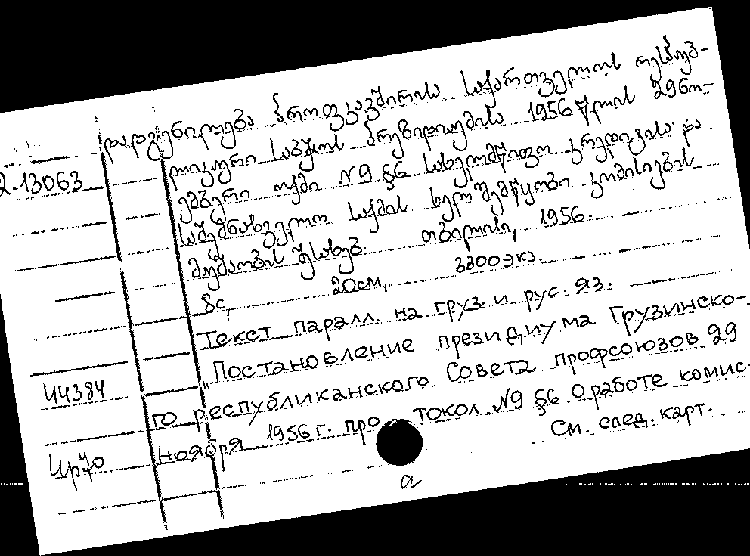 დადგენილება პროფკავშირის საქართველოს რესპუბ-
ლიკური საბჭოს პრეზიდიუმის 1956 წლის 29 ნო-
2-13063
ემბერი ოქმი №9 §6 სახელმწიფო კრედიტისა და
საშემნახველო საქმის ხელშემწყობი კომისიების
მუშაობის შესახებ. თბილისი, 1956.
8с, 20см, 3300экз
Текст паралл. на груз. и рус. яз.
"Постановление президиума Грузинско-
44384
го республиканского Совета профсоюзов 29
ноября 1956 г. про токол №9 §6 О работе комис-
См. след. карт.
а